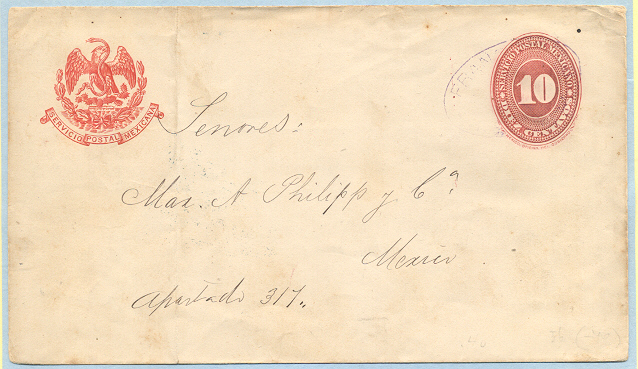 SERVICIO POSTAL MEXICANO
FRAN
SERVICIO POSTAL MEXICANO
10
DIEZ CENTAVOS
Senores:
Max. A Philipp y Cª
Mexico
Apartado 317.